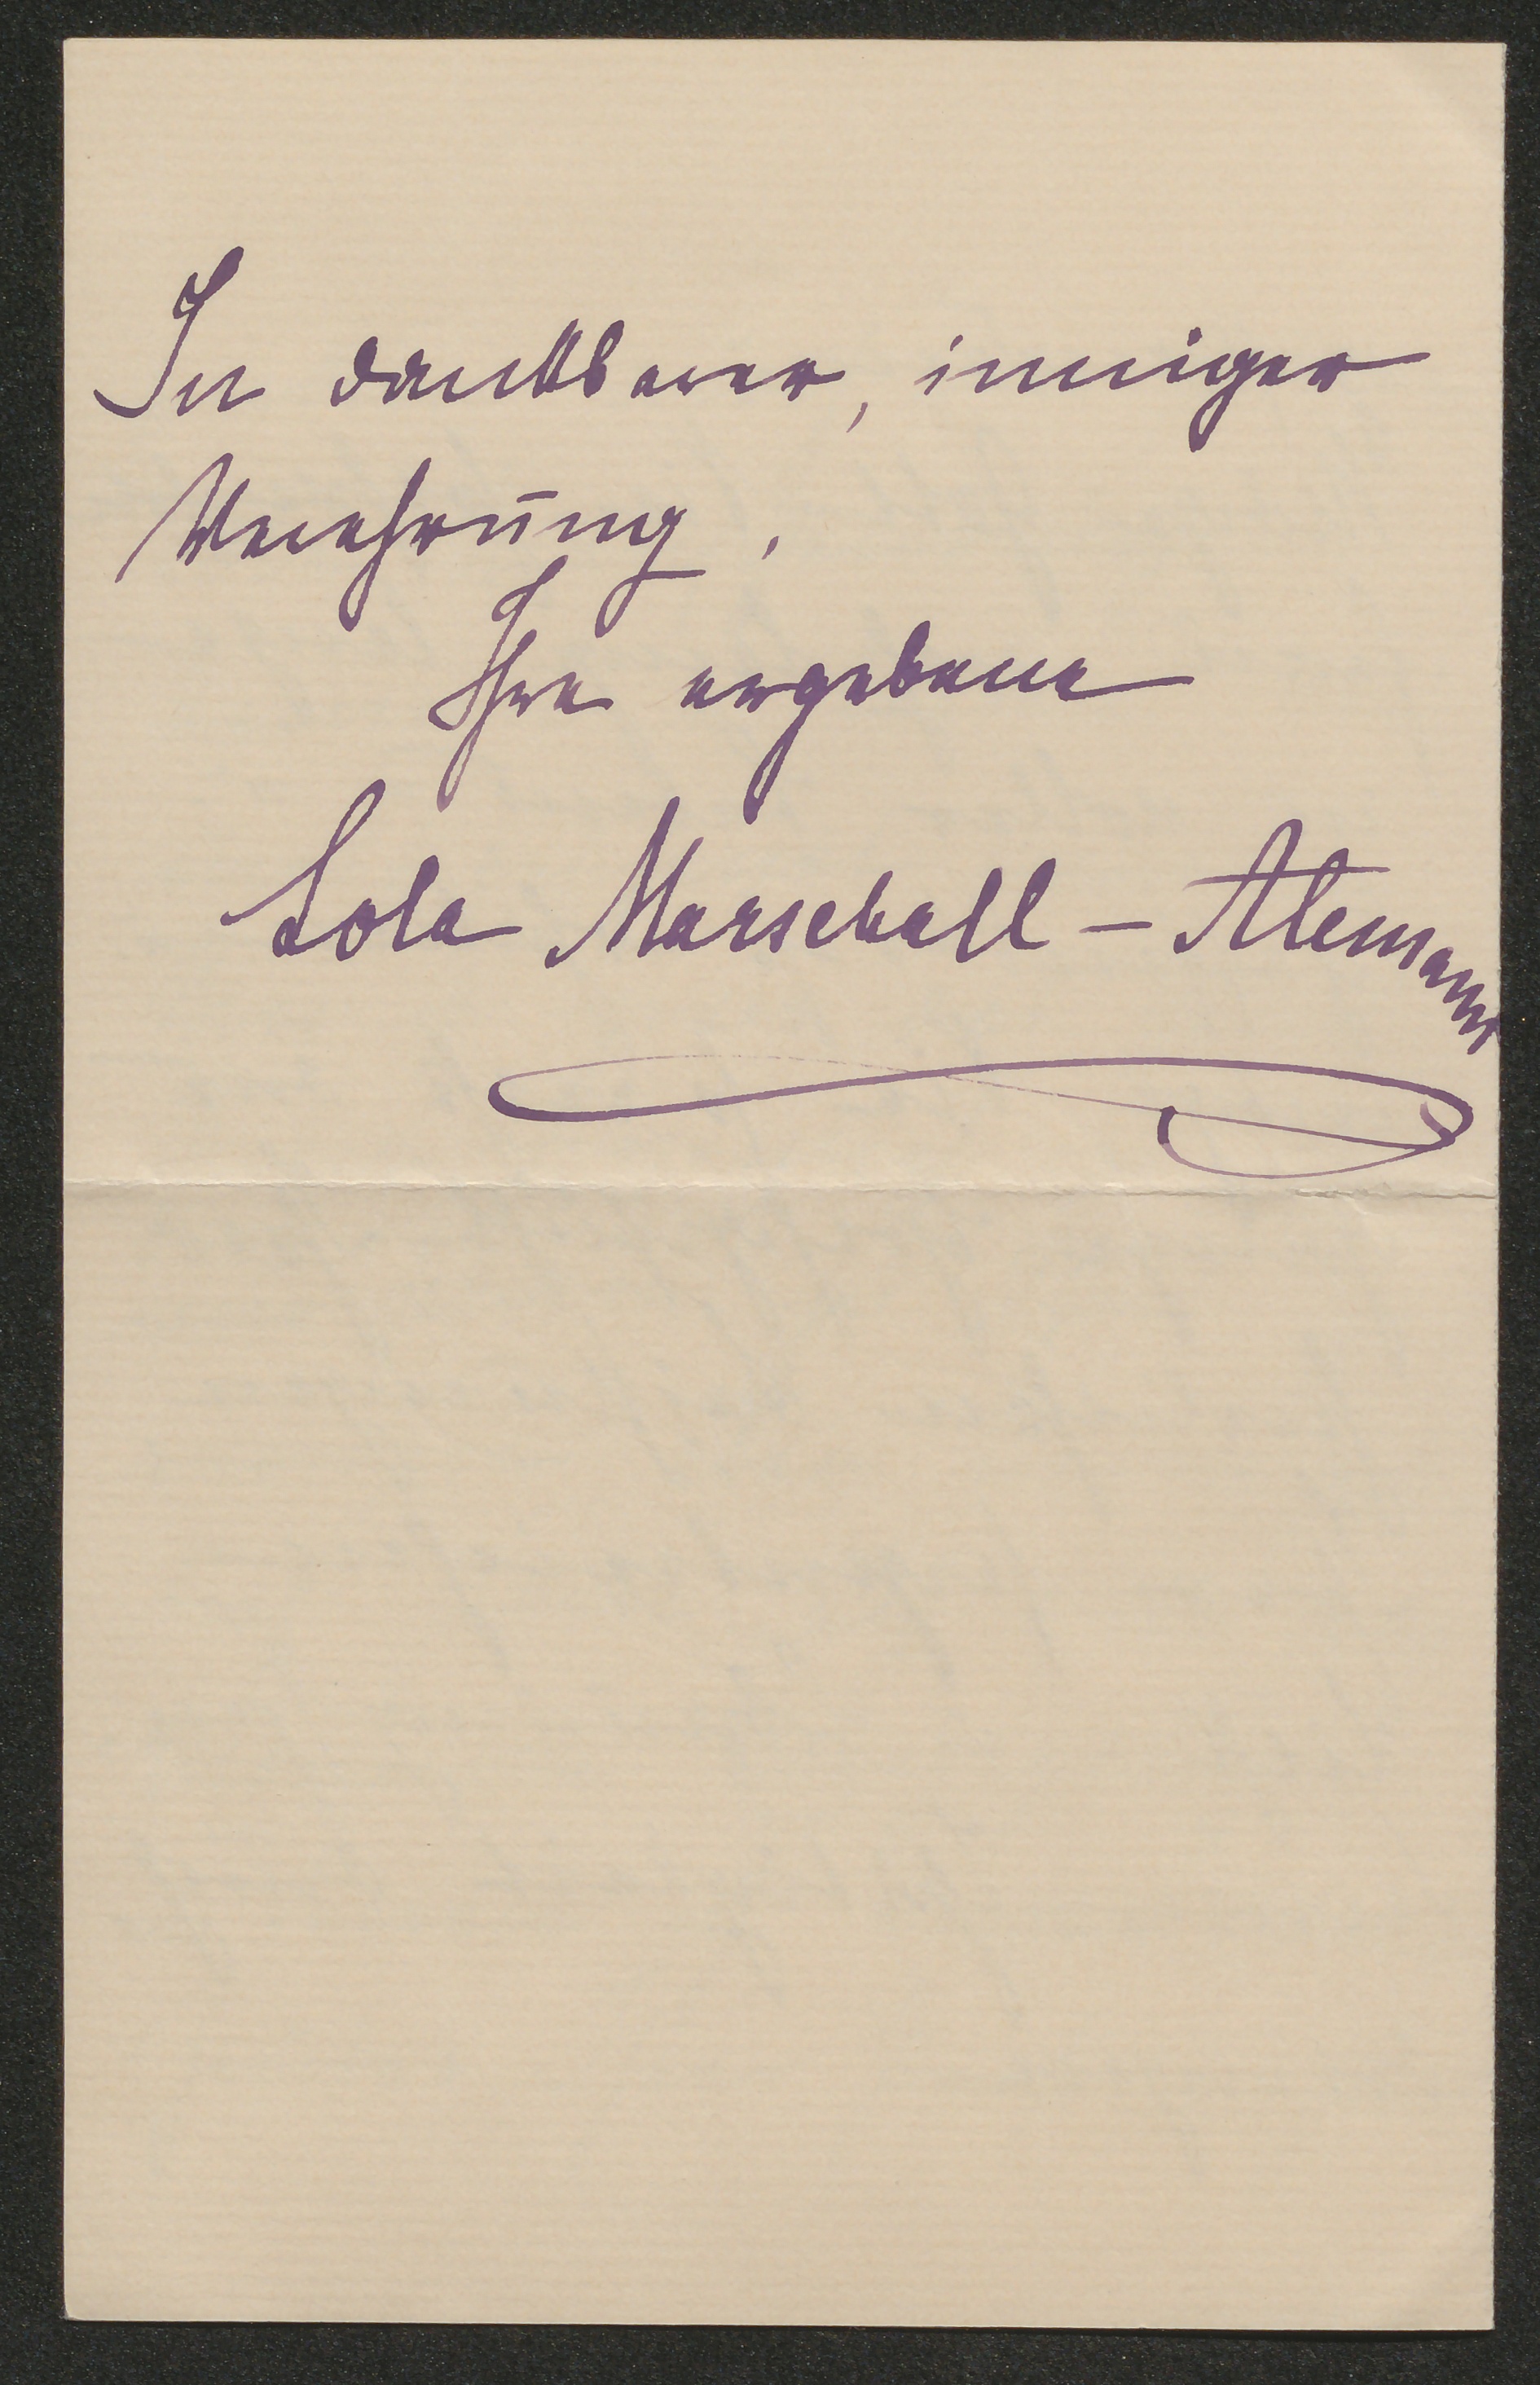 In dankbarer, inniger
Verehrung,
Ihre ergebene
Lola Marschall - Alemann